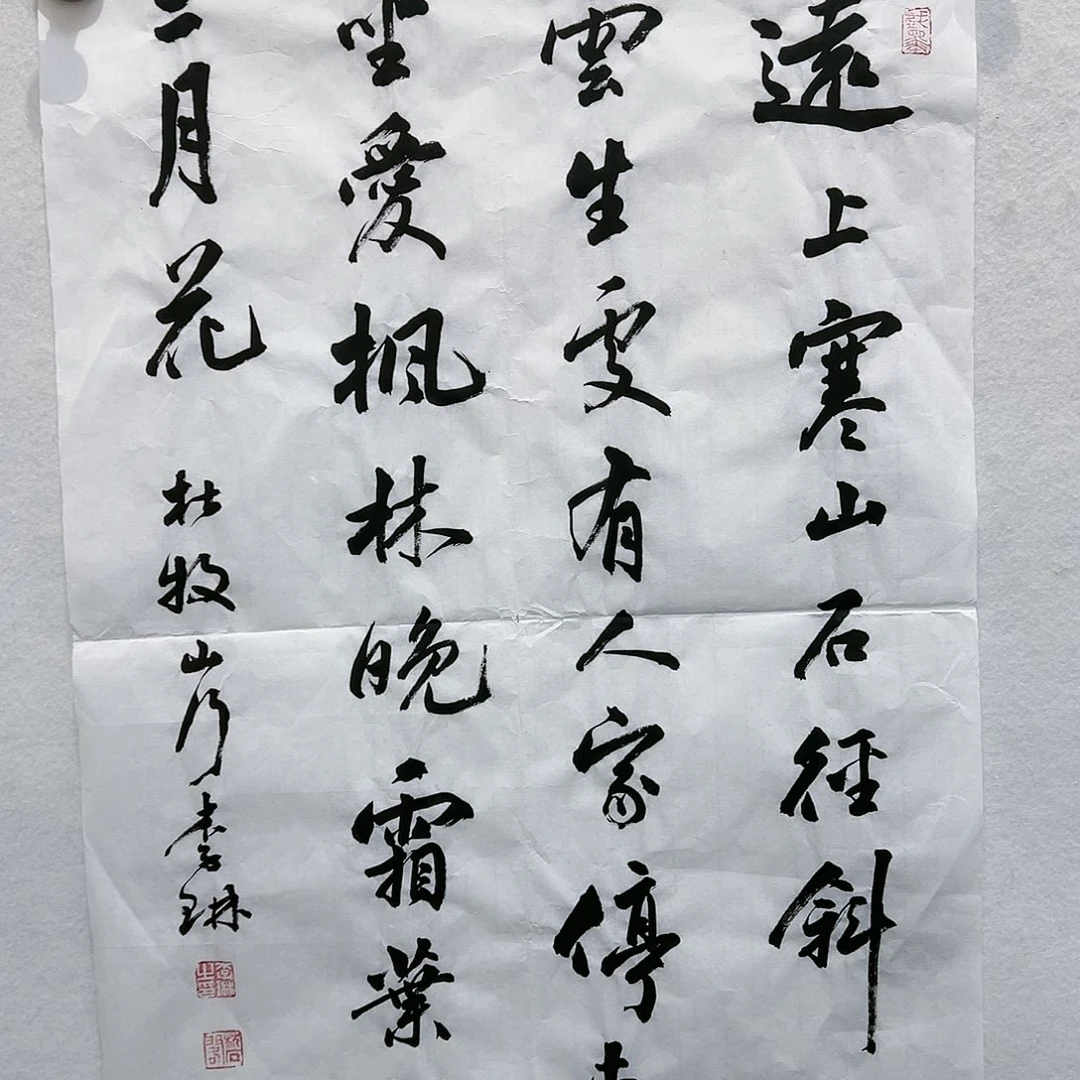 遠上寒山石徑斜
雲生處有人家停
坐愛楓林晚霜葉
二月花 杜牧山行 李琳